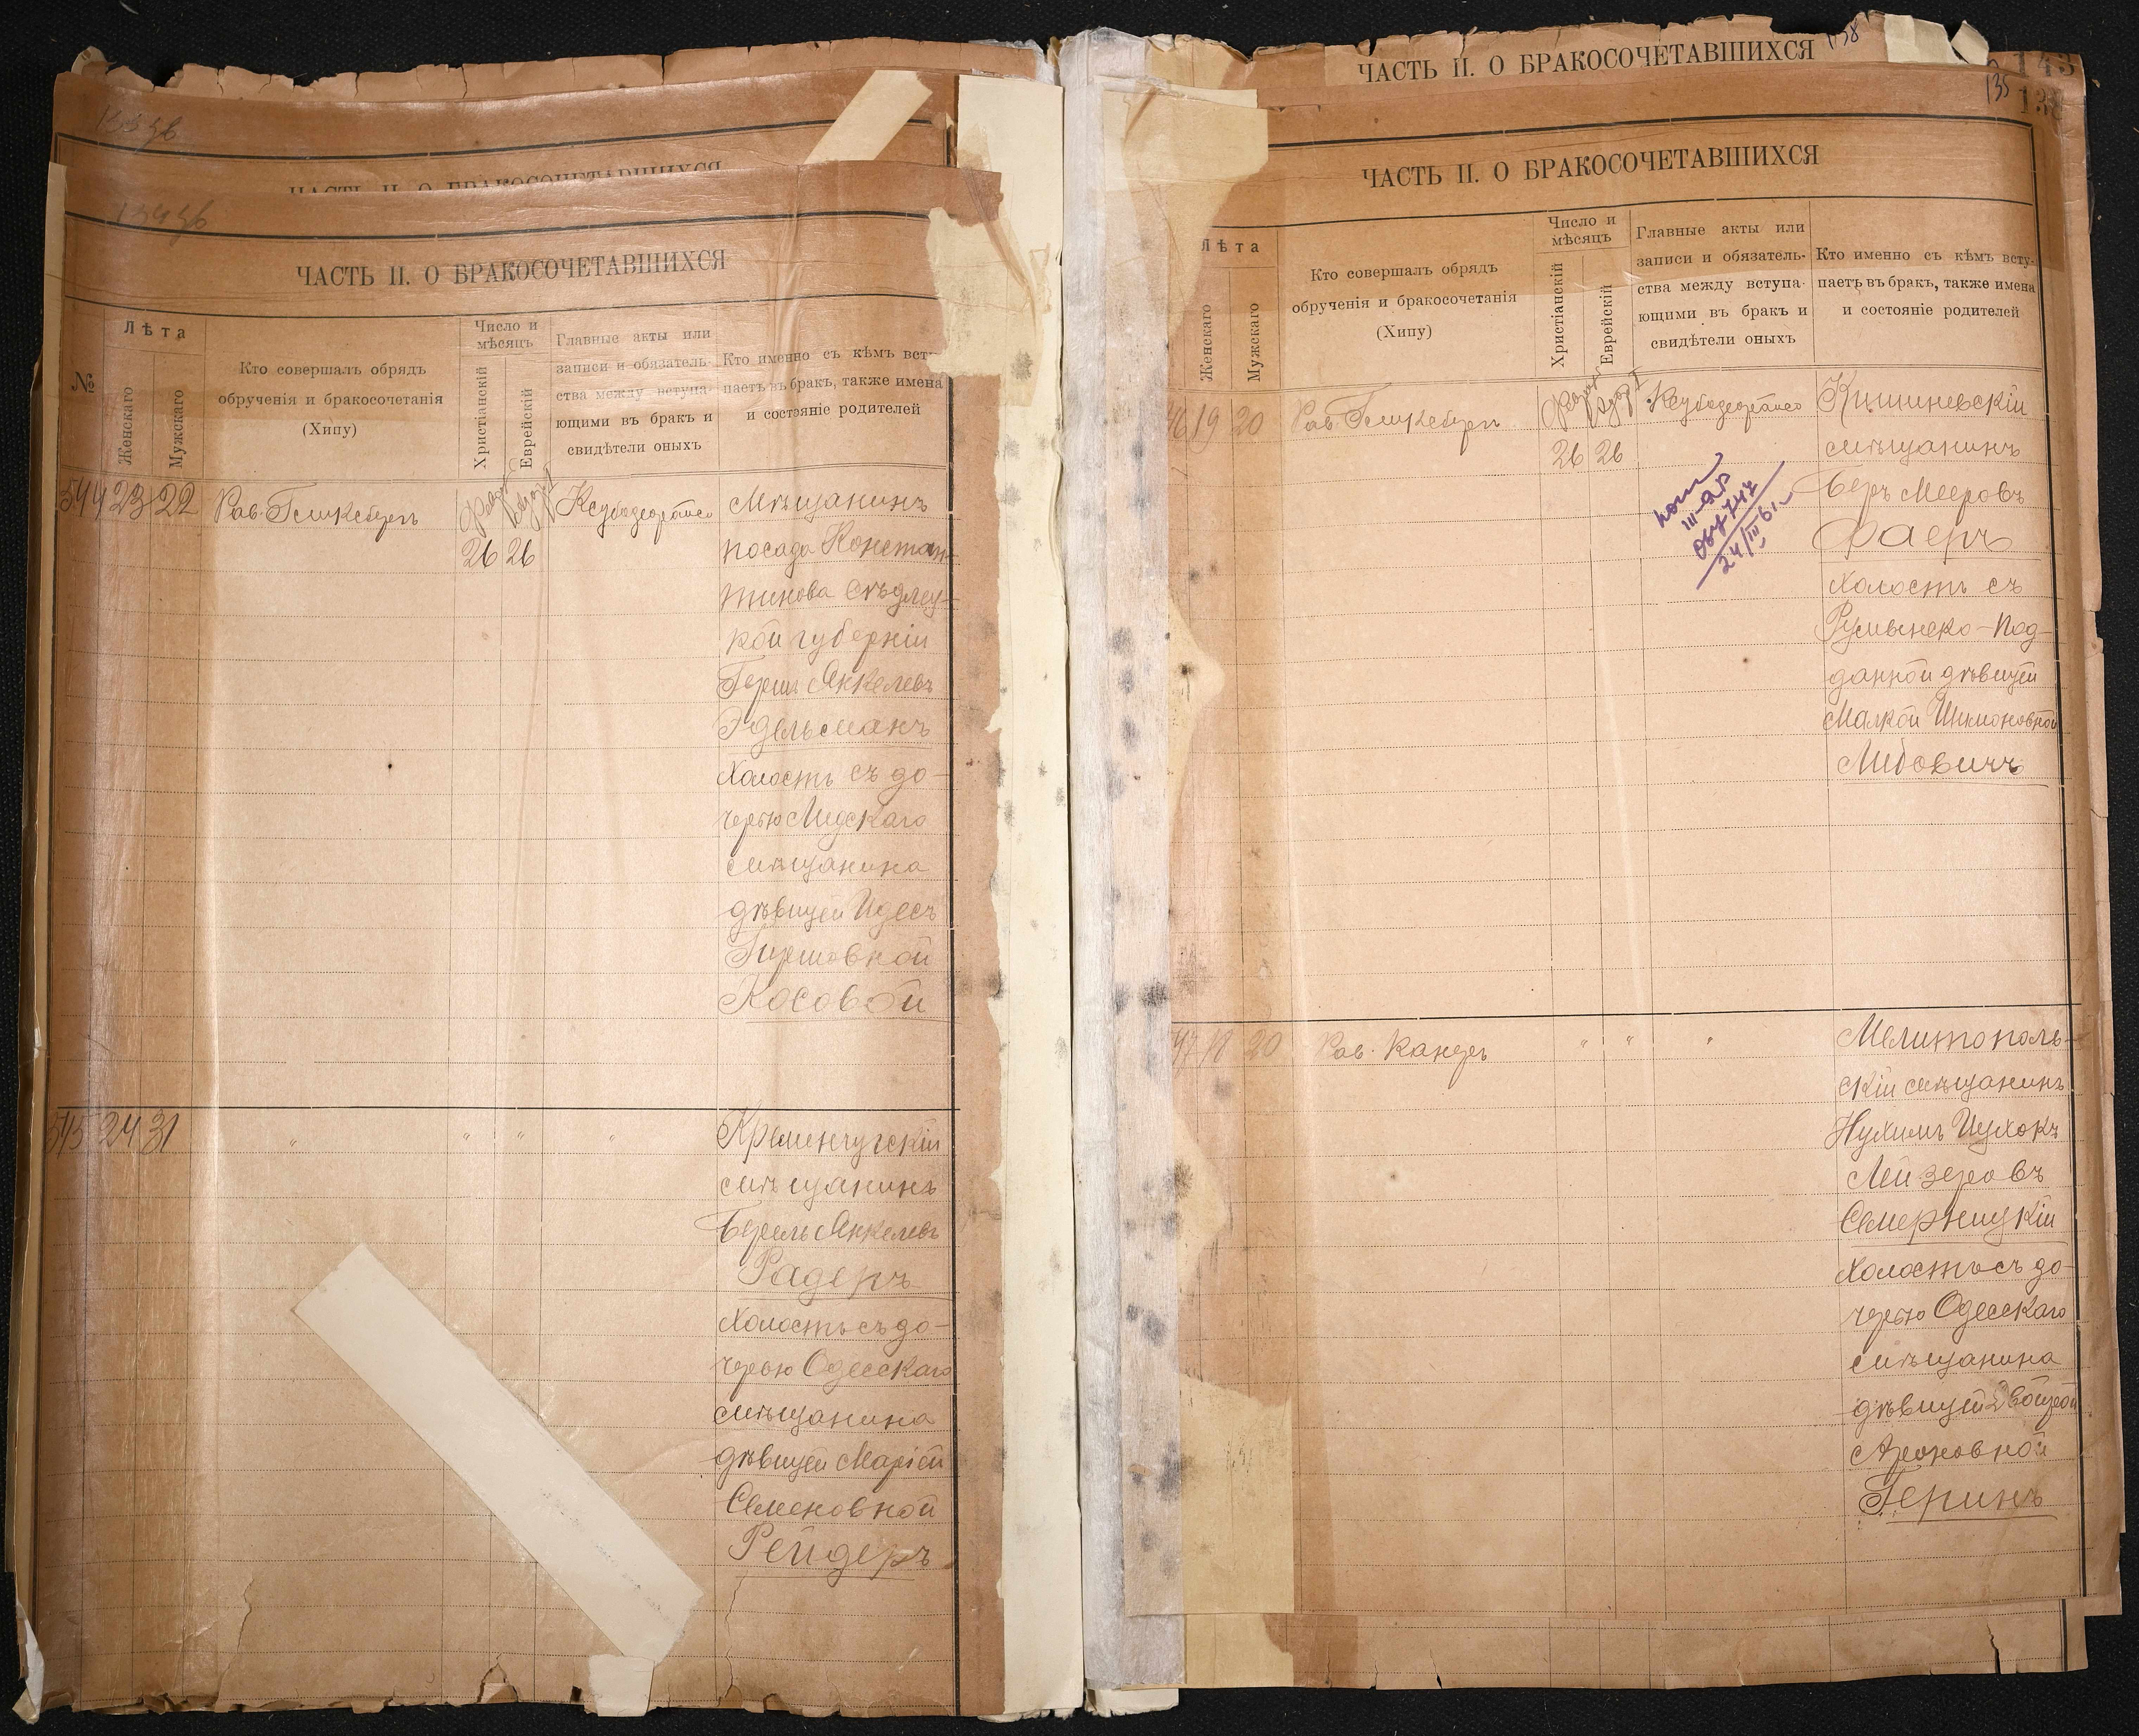 ЧАСТЬ II. О БРАКОСОЧЕТАВШИХСЯ
ЧАСТЬ II. О БРАКОСОЧЕТАВШИХСЯ
№
Лѣта
Женскаго
Мужскаго
Кто совершалъ обрядъ
обрученія и бракосочетанія
(Хипу)
Число и
мѣсяцъ
Христіанскій
Еврейскій
Главные акты или
записи и обязатель-
ства между вступа-
ющими въ бракъ и
свидѣтели оныхъ
Кто именно съ кѣмъ всту-
паетъ въ бракъ, также имена
и состояніе родителей
544 23 22
Рав.
26 26
Мѣщанинъ
посада Констан-
тинова Сѣдлец-
кой губерніи
Гершъ Янкелевъ
Эдельсманъ
Холостъ съ до-
черью Лидскаго
мѣщанина
дѣвицей Идесъ
Гиршовной
Косовой
545 24 31 " " " "
Кременчугскій
мѣщанинъ
Берель Янкелевъ
Радеръ
Холостъ съ до-
черью Одесскаго
мѣщанина
дѣвицей Маріей
Семеновной
Рейдеръ
ЧАСТЬ II. О БРАКОСОЧЕТАВШИХСЯ
138
143
135
ЧАСТЬ II. О БРАКОСОЧЕТАВШИХСЯ
Лѣта
Женскаго
Мужскаго
Кто совершалъ обрядъ
обрученія и бракосочетанія
(Хипу)
Число и
мѣсяцъ
Христіанскій
Еврейскій
Главные акты или
записи и обязатель-
ства между вступа-
ющими въ бракъ и
свидѣтели оныхъ
Кто именно съ кѣмъ всту-
паетъ въ бракъ, также имена
и состояніе родителей
46 19 20
Рав.
26 26
Кишиневскій
мѣщанинъ
Беръ Мееровъ
Фаеръ
Холостъ съ
Румынско-Под-
данной дѣвицей
Малкой Шимоновной
Либовичъ
24/III 61
47 18 20
Рав. Канеръ
" " "
Мелитополь-
скій мѣщанинъ
Нухимъ Ицхокъ
Лейзеровъ
Семерницкій
Холостъ съ до-
черью Одесскаго
мѣщанина
дѣвицей Двойрой
Ароновной
Геринъ